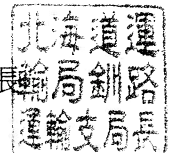 長
北海道運
輸局釧路
運輸支局長